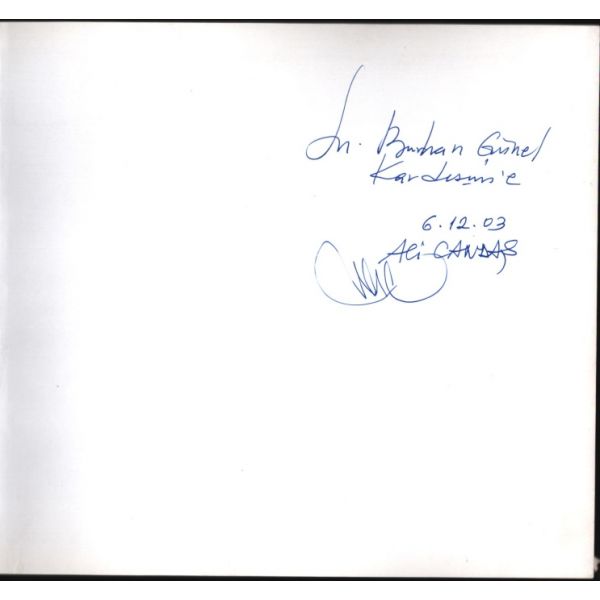 Sn. Burhan Günel
Kardeşim'e
6.12.03
Ali CANDAŞ